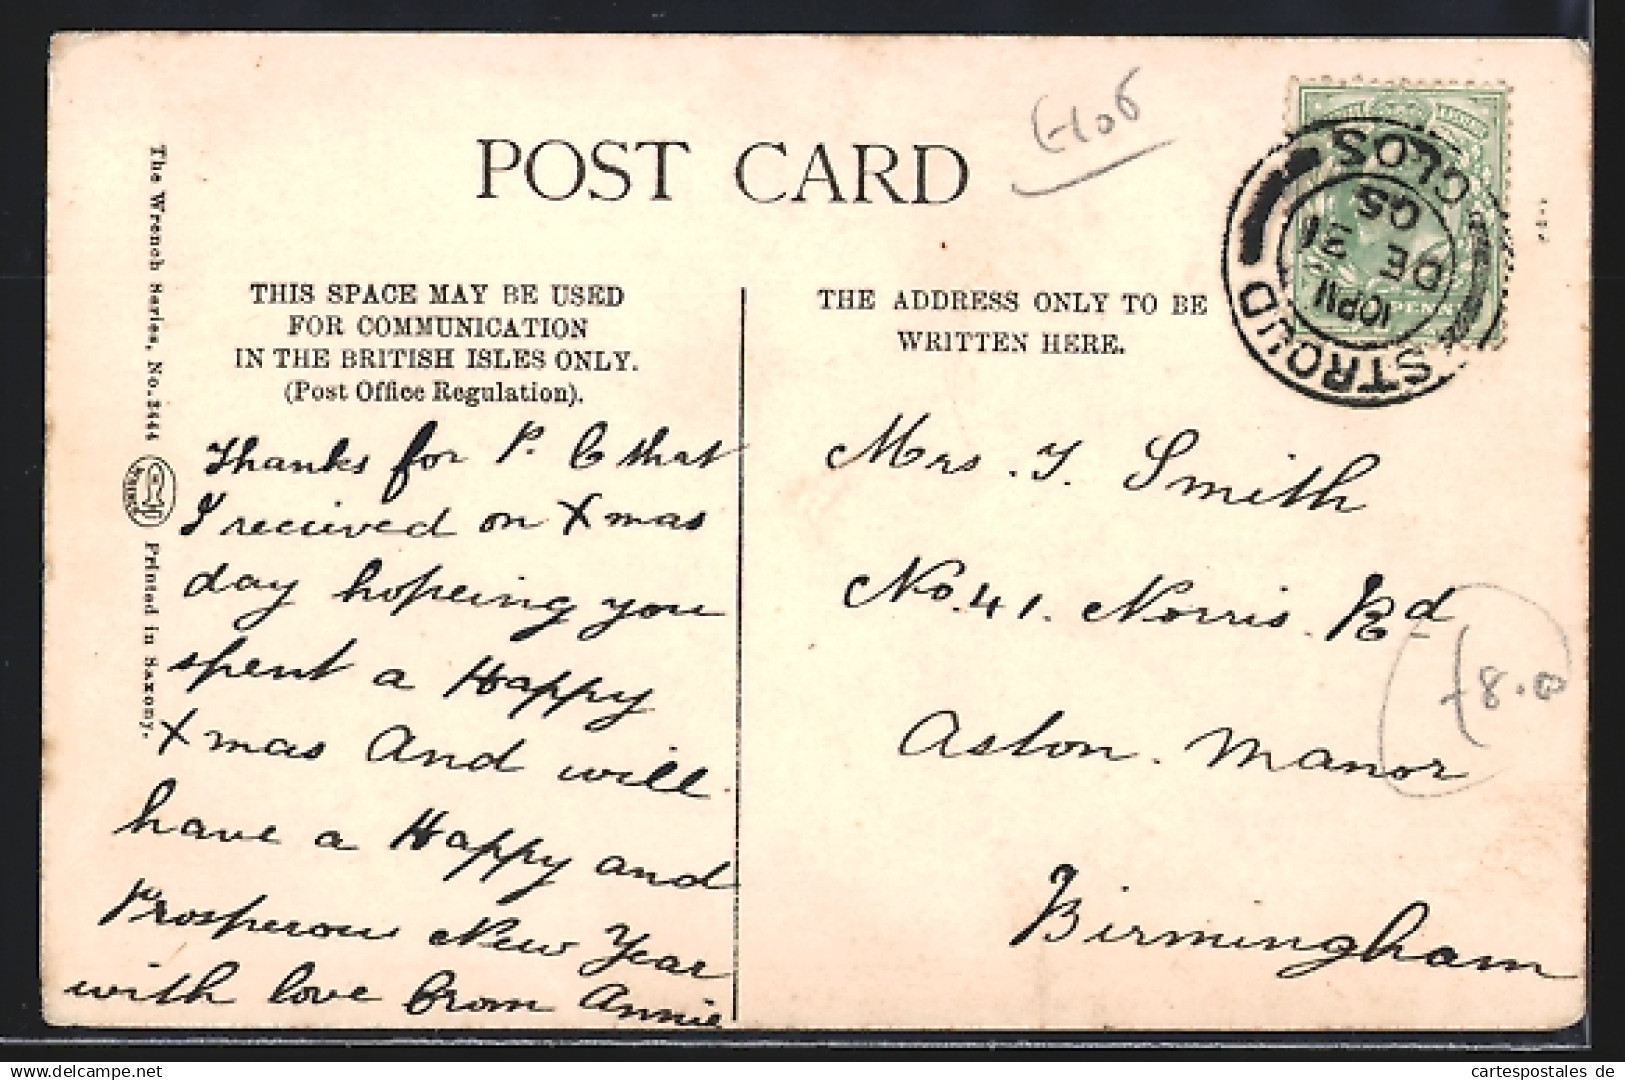 POST CARD
E106
STROUD
GLOS
10 PM
DE 31
05
THIS SPACE MAY BE USED
FOR COMMUNICATION
IN THE BRITISH ISLES ONLY.
(Post Office Regulation).
THE ADDRESS ONLY TO BE
WRITTEN HERE.
The Wrench Series, No. 2444
Printed in Saxony.
Thanks for P. C that
I received on Xmas
day hopeing you
spent a Happy
Xmas And will
have a Happy and
Prosperous New Year
with love from Annie
Mrs. T. Smith
No. 41. Norris. Rd
Aston. Manor
Birmingham
£8.00
delcampe.net
cartespostales de